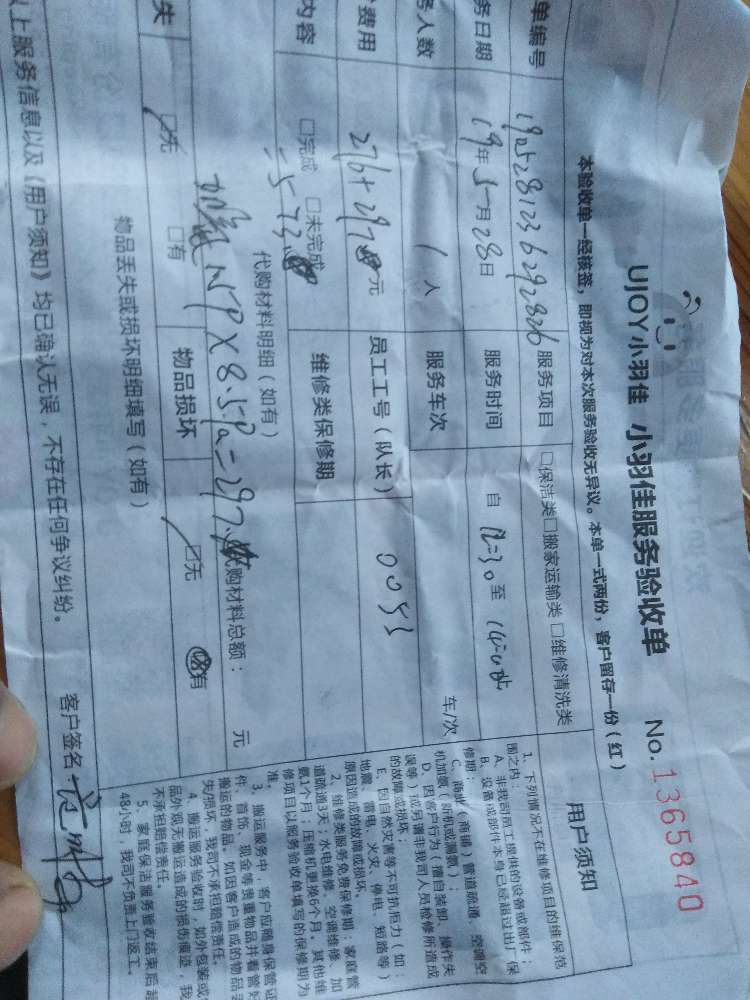 UJOY小羽佳 小羽佳服务验收单 No. 1365840
本验收单一经核签，即视为对本次服务验收无异议。本单一式两份，客户留存一份（红）
单编号 1905281236292826 服务项目 □保洁类□搬家运输类 □维修清洗类
务日期 19年 5月 28日 服务时间 自 12:30 至
务人数 1 人 服务车次 车/次
费用 276+297 元 员工工号（队长） 0053
内容 □完成 □未完成 维修类保修期
=573
代购材料明细（如有）
X8.5Pa=297 代购材料总额： 元
失 □无 □有 物品损坏 □无 □有
物品丢失或损坏明细填写（如有）
以上服务信息以及《用户须知》均已确认无误，不存在任何争议纠纷。 客户签名：
用户须知
1、下列情况不在维修项目的维保范
围之内：
A、非我司员工提供的设备或部件；
B、设备或部件本身已经超过出厂保
修期；
C、商业（商铺）管道疏通、空调空
机加氨（新机或漏氨）；
D、因客户行为（擅自装卸、操作失
误等）或另请非我司人员检修所造成
的故障或损坏；
E、因自然灾害等不可抗拒力（如：
地震、雷电、火灾、停电、短路等）
原因造成的故障或损坏。
2、维修类服务免费保修期：家庭管
道疏通3天；水电维修、空调维修、加
氨1个月；压缩机更换6个月。其他维
修项目以服务验收单填写的保修期为
准。
3、搬运服务中，客户应随身保管证
件、首饰、现金等贵重物品并看管好
搬运的物品。如因客户造成的物品丢
失/损坏，我司不承担赔偿责任。
4、搬运服务验收时，如外包装或
品外观无搬运造成的损伤痕迹，我
不承担赔偿责任。
5、家庭保洁服务验收结束后超
48小时，我司不负责上门返工。